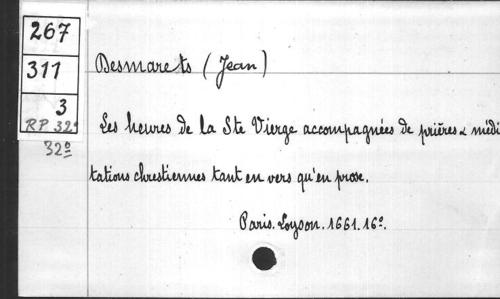 267
311
3
RP 32º
32º
Desmarets (Jean)
Les heures de la Ste Vierge accompagnées de prières & médi
tations chrestiennes tant en vers qu'en prose.
Paris. Loyson. 1661. 16º.